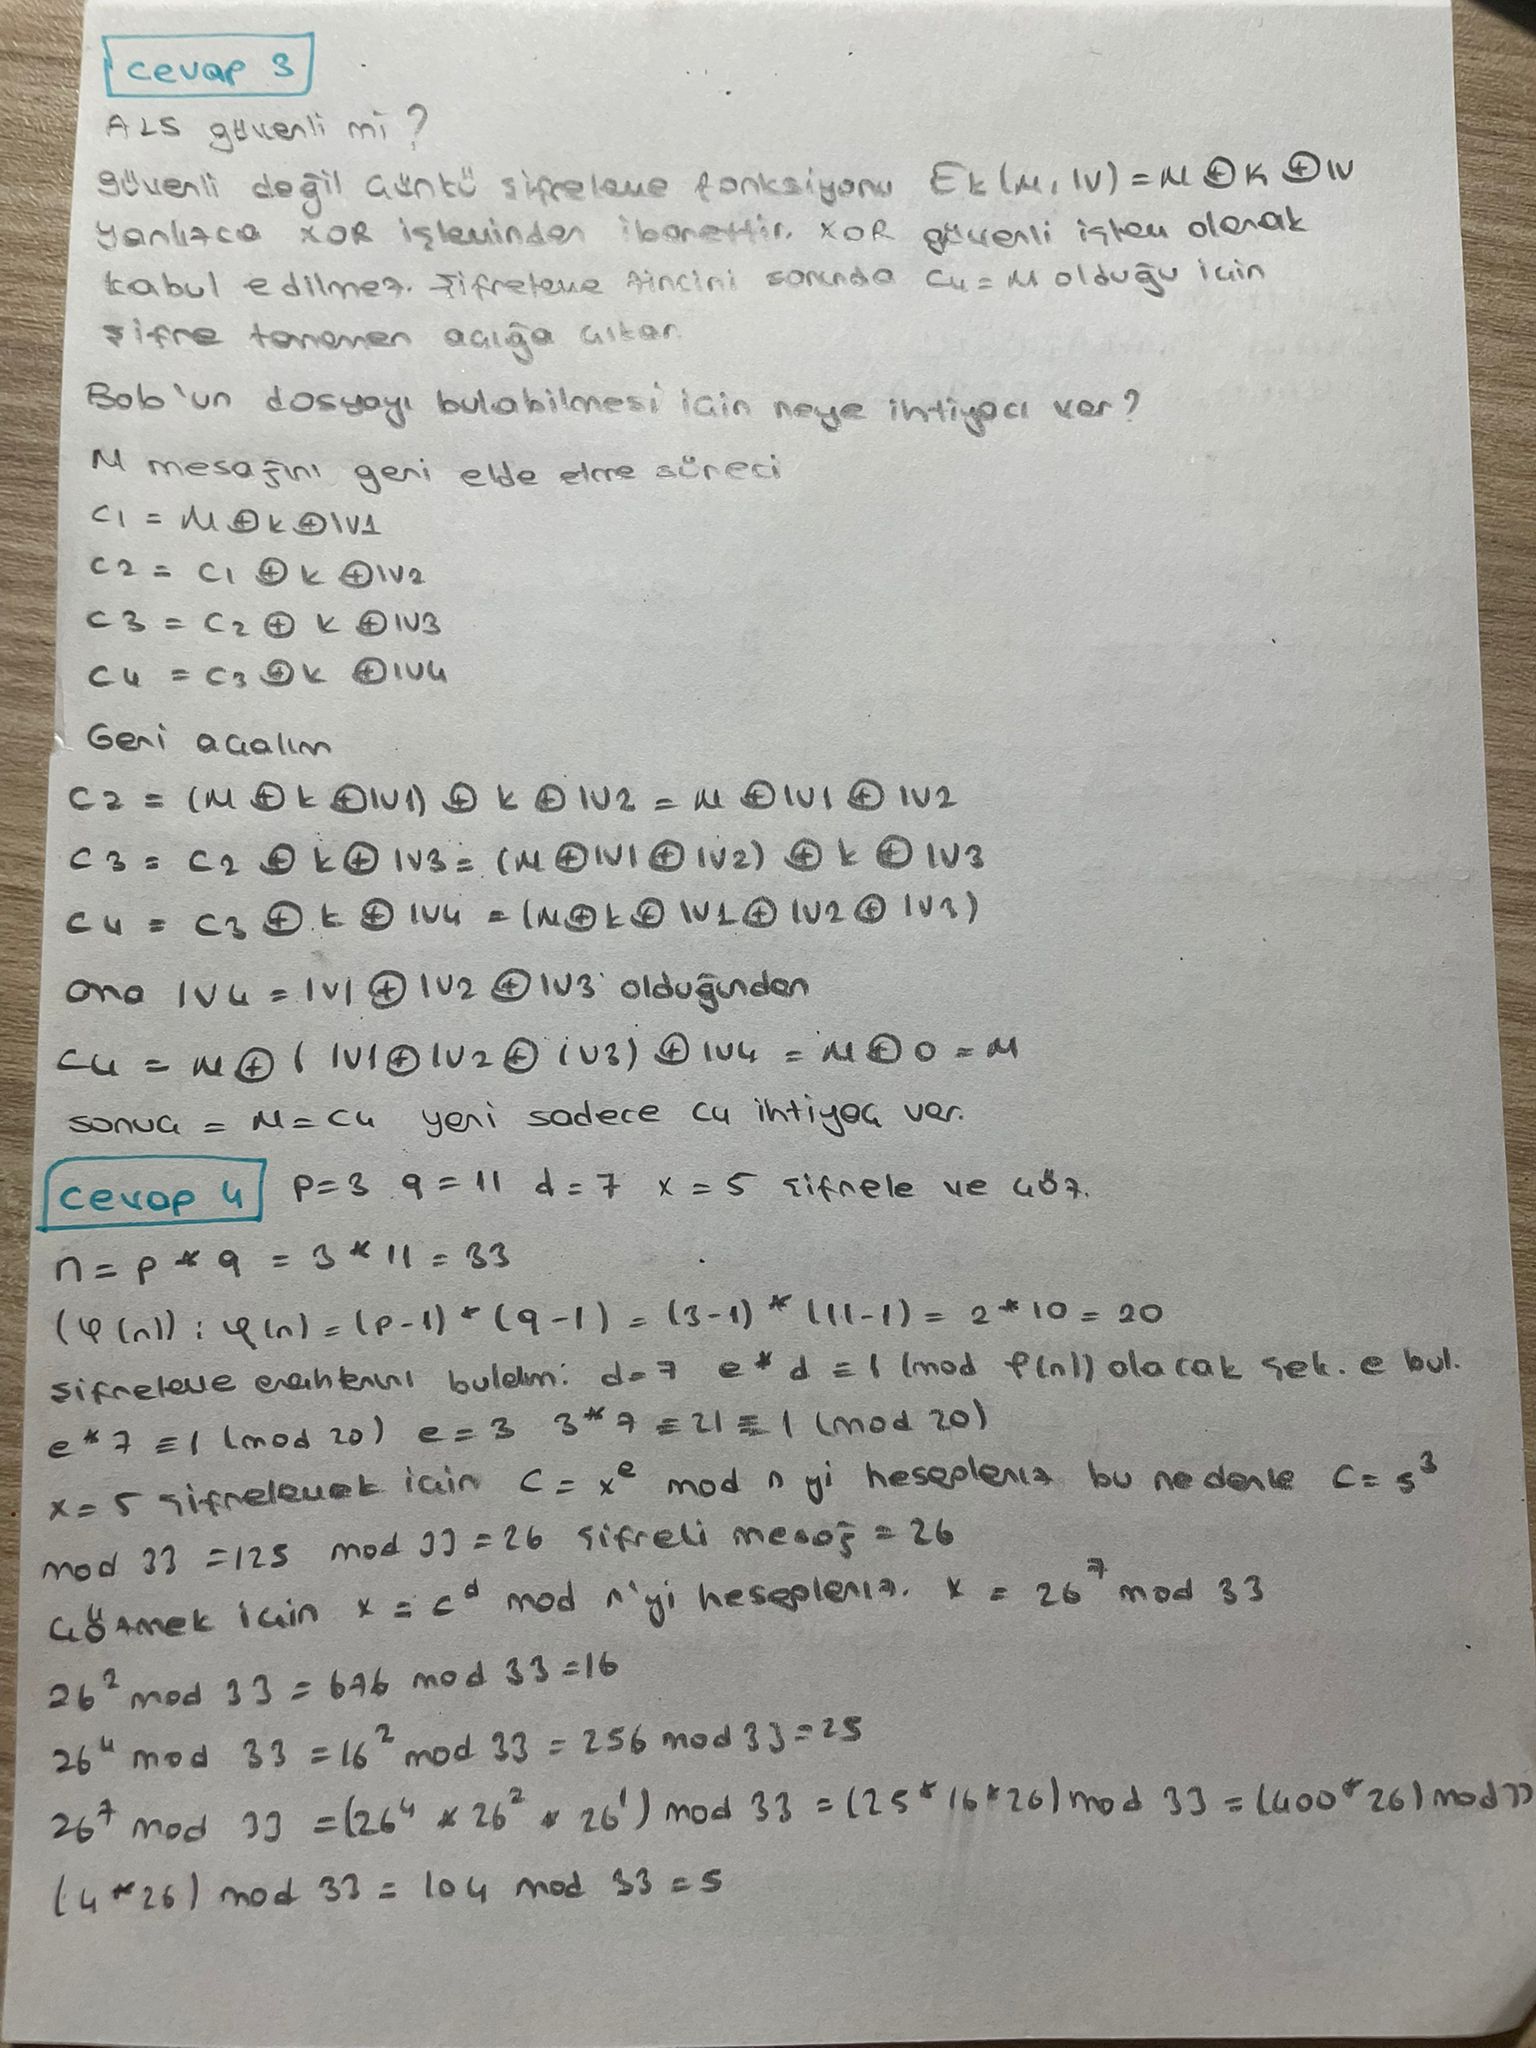 cevap 3
ALS güvenli mi?
güvenli değil Çünkü şifreleme fonksiyonu Ek(M, IV) = M ⊕ K ⊕ IV
yanlızca XOR işleminden ibarettir. XOR güvenli işlem olarak
kabul edilmez. Şifreleme zincini sonunda C4 = M olduğu için
şifre tamamen açığa çıkar.
Bob'un dosyayı bulabilmesi için neye ihtiyacı var?
M mesajını geri elde etme süreci
C1 = M ⊕ k ⊕ IV1
C2 = C1 ⊕ k ⊕ IV2
C3 = C2 ⊕ k ⊕ IV3
C4 = C3 ⊕ k ⊕ IV4
Geri açalım
C2 = (M ⊕ k ⊕ IV1) ⊕ k ⊕ IV2 = M ⊕ IV1 ⊕ IV2
C3 = C2 ⊕ k ⊕ IV3 = (M ⊕ IV1 ⊕ IV2) ⊕ k ⊕ IV3
C4 = C3 ⊕ k ⊕ IV4 = (M ⊕ k ⊕ IV1 ⊕ IV2 ⊕ IV3)
ama IV4 = IV1 ⊕ IV2 ⊕ IV3 olduğundan
C4 = M ⊕ ( IV1 ⊕ IV2 ⊕ IV3) ⊕ IV4 = M ⊕ 0 = M
sonuç = M = C4 yani sadece C4 ihtiyaç var.
cevap 4 P=3 q=11 d=7 x=5 şifrele ve çöz.
n = p * q = 3 * 11 = 33
(φ(n)) : φ(n) = (p-1) * (q-1) = (3-1) * (11-1) = 2 * 10 = 20
şifreleme anahtarını bulalım: d=7 e * d ≡ 1 (mod φ(n)) olacak şek. e bul.
e * 7 ≡ 1 (mod 20) e = 3 3 * 7 ≡ 21 ≡ 1 (mod 20)
x = 5 şifrelemek için C = x^e mod n yi hesaplarız bu nedenle C = 5^3
mod 33 = 125 mod 33 = 26 şifreli mesaj = 26
çözmek için x = c^d mod n'yi hesaplarız. x = 26^7 mod 33
26^2 mod 33 = 676 mod 33 = 16
26^4 mod 33 = 16^2 mod 33 = 256 mod 33 = 25
26^7 mod 33 = (26^4 * 26^2 * 26^1) mod 33 = (25 * 16 * 26) mod 33 = (400 * 26) mod 33
(4 * 26) mod 33 = 104 mod 33 = 5